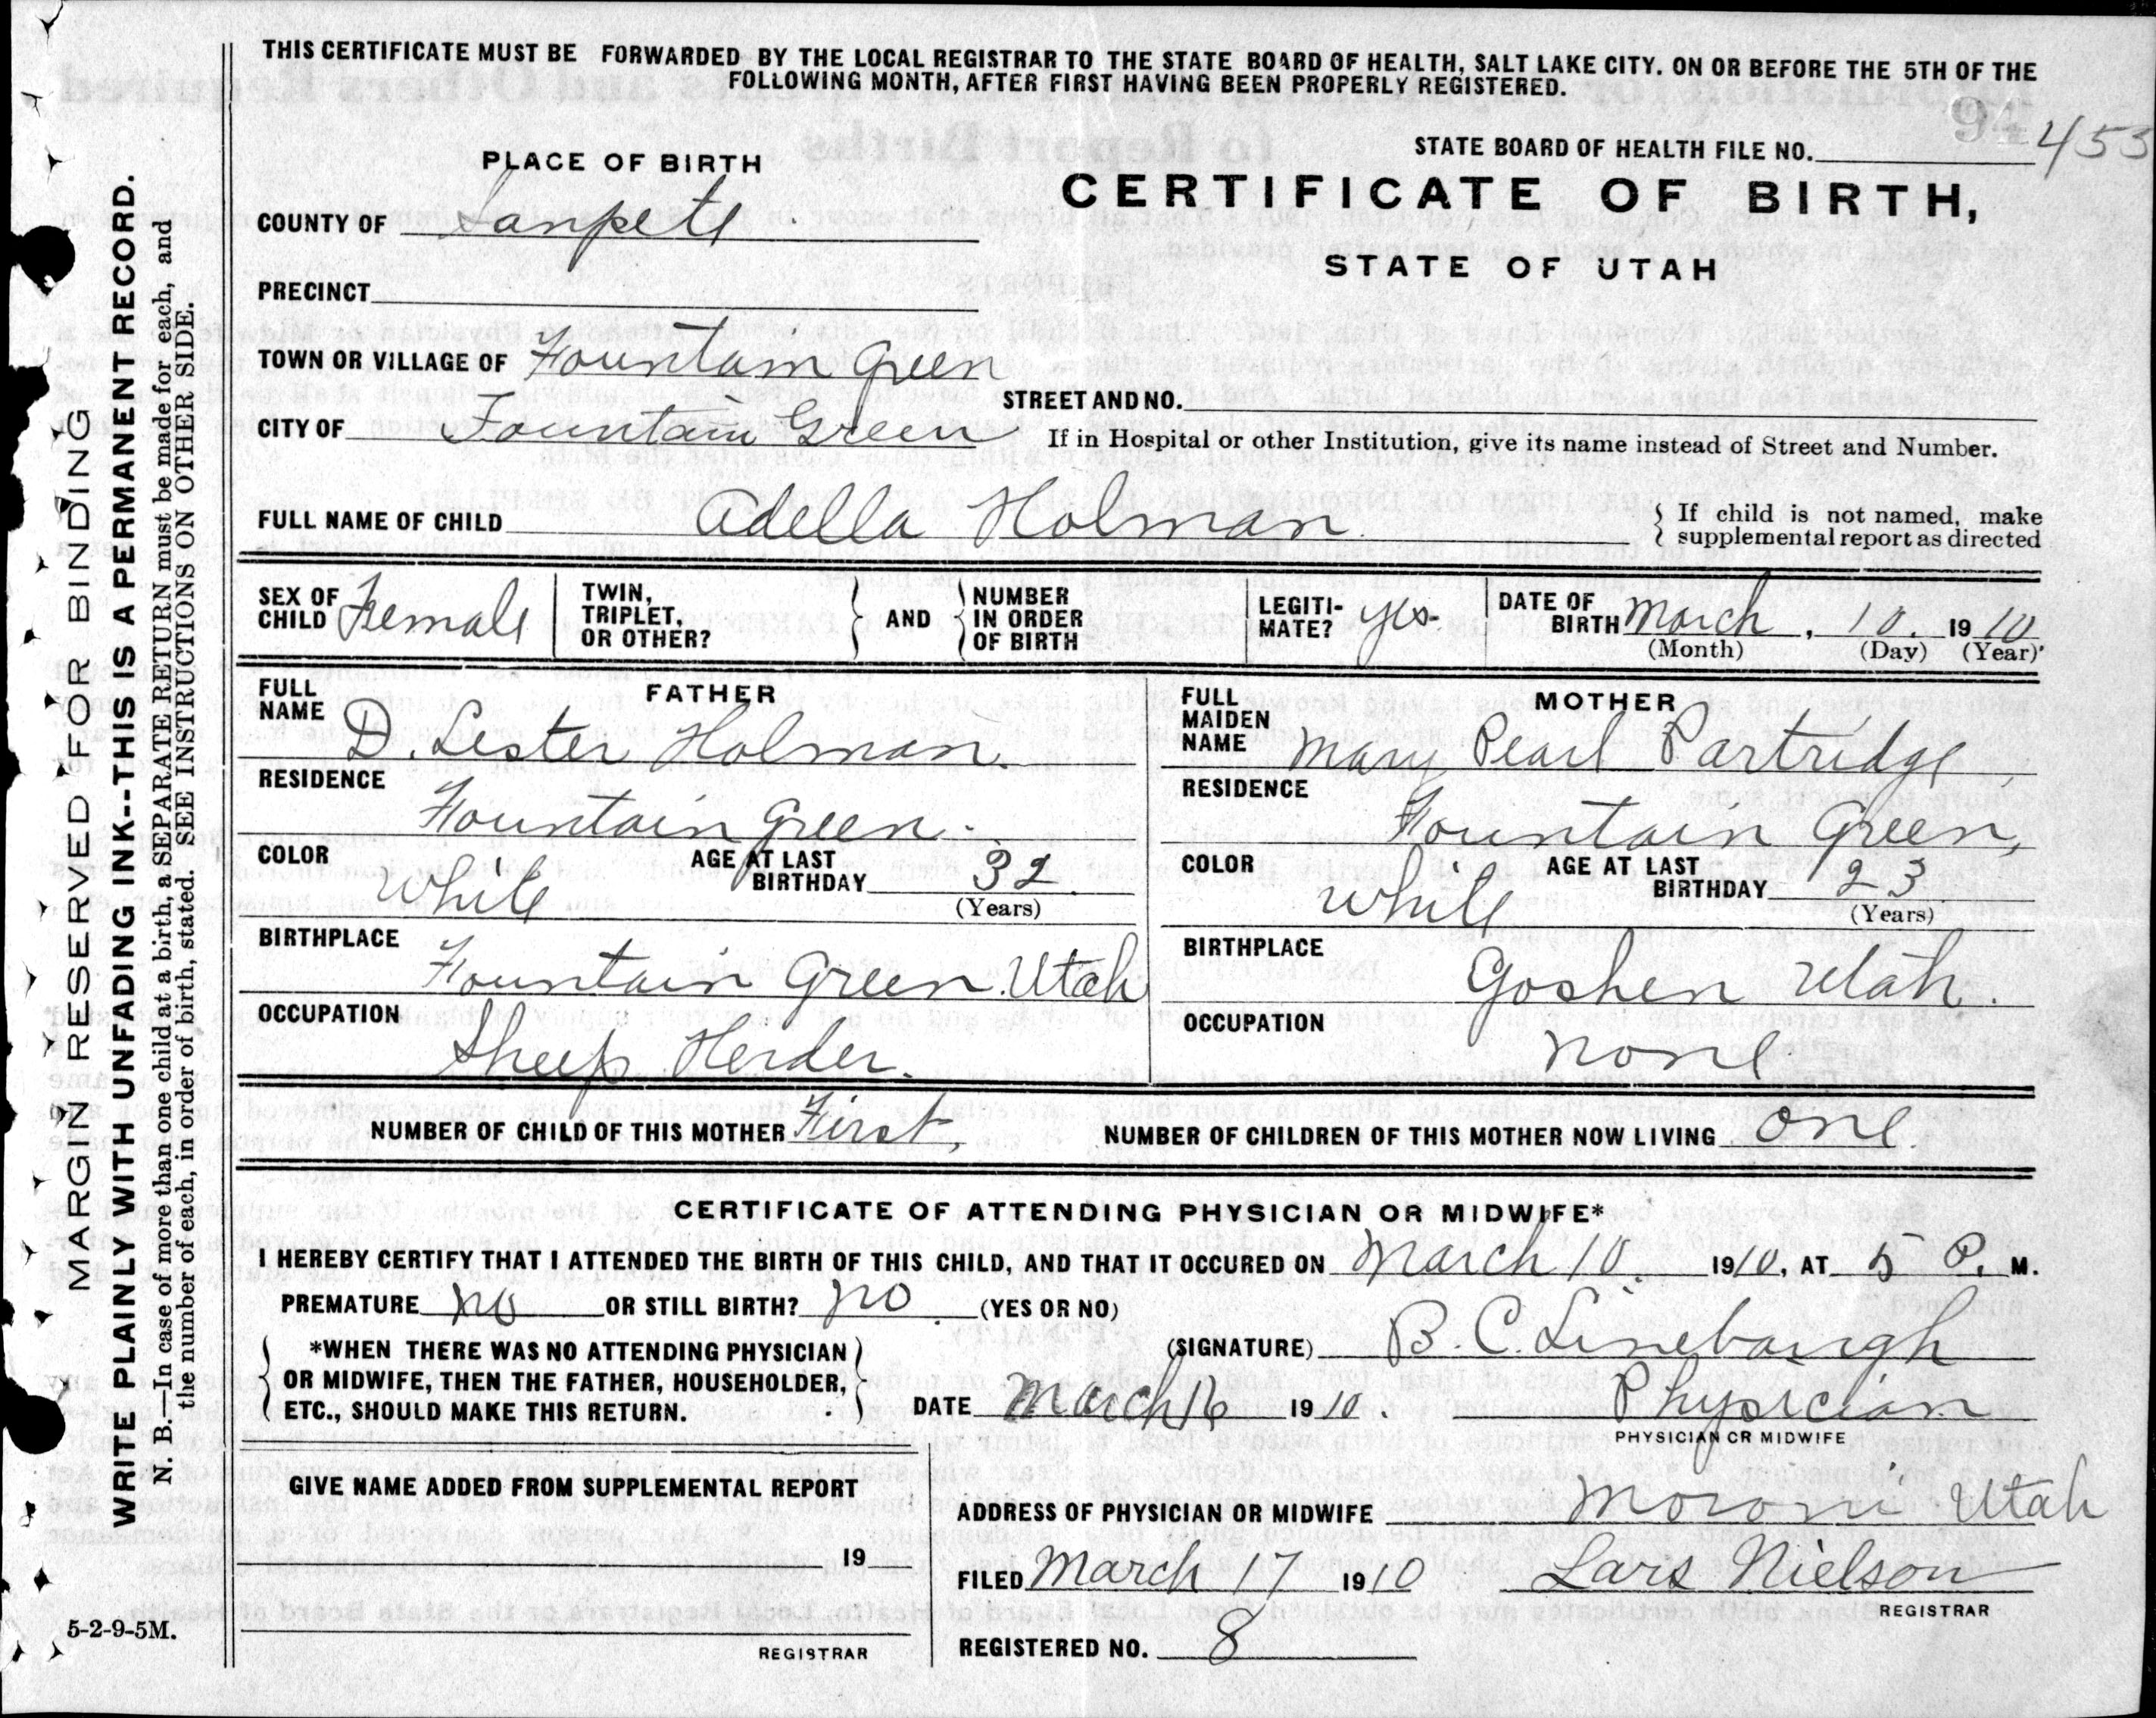 THIS CERTIFICATE MUST BE FORWARDED BY THE LOCAL REGISTRAR TO THE STATE BOARD OF HEALTH, SALT LAKE CITY. ON OR BEFORE THE 5TH OF THE
FOLLOWING MONTH, AFTER FIRST HAVING BEEN PROPERLY REGISTERED.
94 453
STATE BOARD OF HEALTH FILE NO.
PLACE OF BIRTH
CERTIFICATE OF BIRTH,
STATE OF UTAH
COUNTY OF Sanpete
PRECINCT
TOWN OR VILLAGE OF Fountain Green
STREET AND NO.
CITY OF Fountain Green
If in Hospital or other Institution, give its name instead of Street and Number.
FULL NAME OF CHILD Adella Holman
If child is not named, make
supplemental report as directed
SEX OF CHILD Female
TWIN, TRIPLET, OR OTHER?
AND
NUMBER IN ORDER OF BIRTH
LEGITI-MATE? yes-
DATE OF BIRTH March, 10. 1910
(Month) (Day) (Year)
FATHER
FULL NAME D. Lester Holman.
RESIDENCE
Fountain Green.
COLOR White
AGE AT LAST BIRTHDAY 32
(Years)
BIRTHPLACE
Fountain Green. Utah
OCCUPATION
Sheep Herder.
MOTHER
FULL MAIDEN NAME Mary Pearl Partridge,
RESIDENCE
Fountain Green,
COLOR White
AGE AT LAST BIRTHDAY 23
(Years)
BIRTHPLACE
Goshen Utah.
OCCUPATION
none
NUMBER OF CHILD OF THIS MOTHER First,
NUMBER OF CHILDREN OF THIS MOTHER NOW LIVING one.
CERTIFICATE OF ATTENDING PHYSICIAN OR MIDWIFE*
I HEREBY CERTIFY THAT I ATTENDED THE BIRTH OF THIS CHILD, AND THAT IT OCCURED ON March 10. 1910, AT 5 P. M.
PREMATURE no OR STILL BIRTH? no (YES OR NO)
*WHEN THERE WAS NO ATTENDING PHYSICIAN
OR MIDWIFE, THEN THE FATHER, HOUSEHOLDER,
ETC., SHOULD MAKE THIS RETURN.
(SIGNATURE) B. C. Linebaugh
DATE March 16 1910. Physician
PHYSICIAN OR MIDWIFE
GIVE NAME ADDED FROM SUPPLEMENTAL REPORT
19
REGISTRAR
ADDRESS OF PHYSICIAN OR MIDWIFE Moroni Utah
FILED March 17 1910 Lars Nielson
REGISTRAR
REGISTERED NO. 8
MARGIN RESERVED FOR BINDING
WRITE PLAINLY WITH UNFADING INK--THIS IS A PERMANENT RECORD.
N. B.—In case of more than one child at a birth a SEPARATE RETURN must be made for each, and
the number of each, in order of birth, stated. SEE INSTRUCTIONS ON OTHER SIDE.
5-2-9-5M.